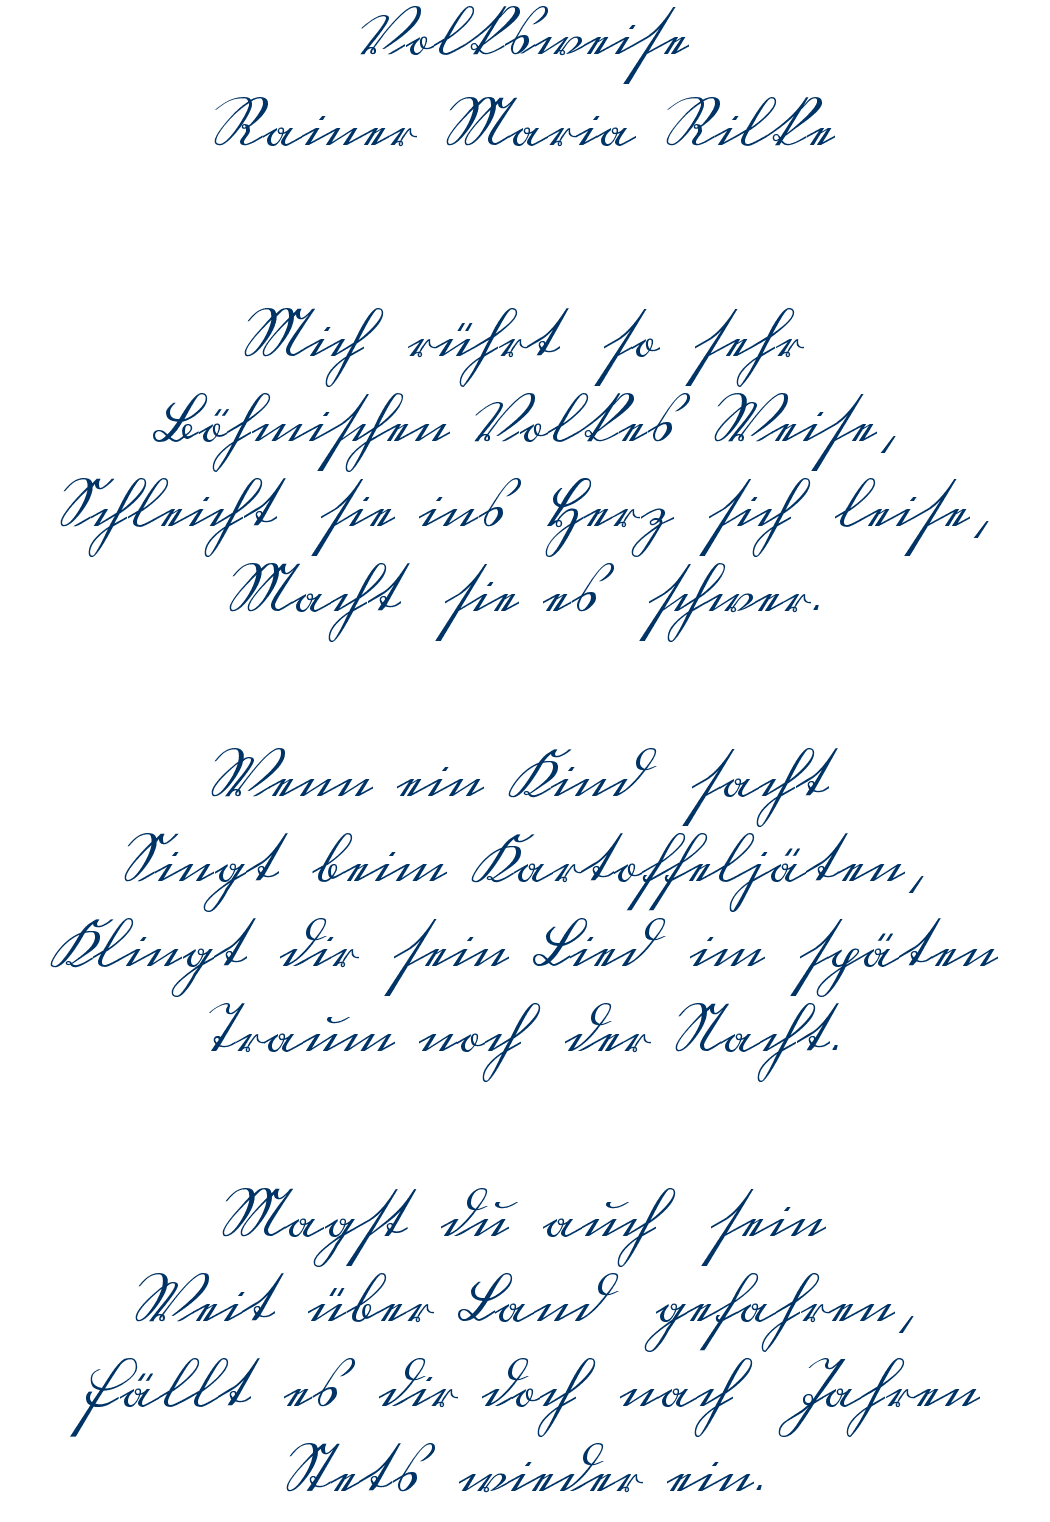 Volksweise
Rainer Maria Rilke
Mich rührt so sehr
Böhmischen Volkes Weise,
Schleicht sie ins Herz sich leise,
Macht sie es schwer.
Wenn ein Kind sacht
Singt beim Kartoffeljäten,
Klingt dir sein Lied im späten
Traum noch der Nacht.
Magst du auch sein
Weit über Land gefahren,
Fällt es dir doch nach Jahren
Stets wieder ein.